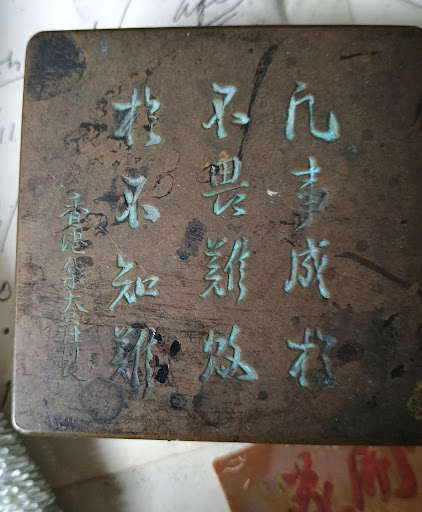 凡事成於
不畏難敗
於不知難
香港大社製